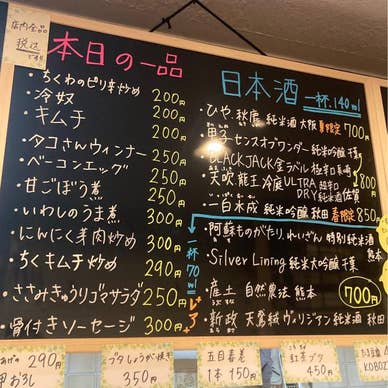 店内全品
税込
です
本日の一品
・ちくわのピリ辛炒め 200円
・冷奴 200円
・キムチ 200円
・タコさんウィンナー 250円
・ベーコンエッグ 250円
・甘ごぼう煮 250円
・いわしのうま煮 300円
・にんにく芽肉炒め 300円
・ちくキムチ炒め 290円
・ささみきゅうりゴマサラダ 250円
・骨付きソーセージ 300円
日本酒 一杯 140ml
・ひや 秋鹿 純米酒 大阪 夏限定 700円
・甲子 センスオブワンダー 純米吟醸 千葉
・BLACK JACK 金ラベル 極辛口 長崎
・美吹龍王 冷庭 ULTRA 超辛口 DRY 純米酒 佐賀 800円
・一白水成 純米吟醸 秋田 夏限定 850円
一杯70ml
レア
・阿蘇ものがたり、れいざん 特別純米酒 熊本
・Silver Lining 純米大吟醸 千葉
・産土 自然農法 熊本
700円
・新政 天鵞絨 ヴィリジアン 純米酒 秋田
290円
おろし
ブタしょうが焼き
350円
五目春巻
1本 150円
紅茶ブタ
450円